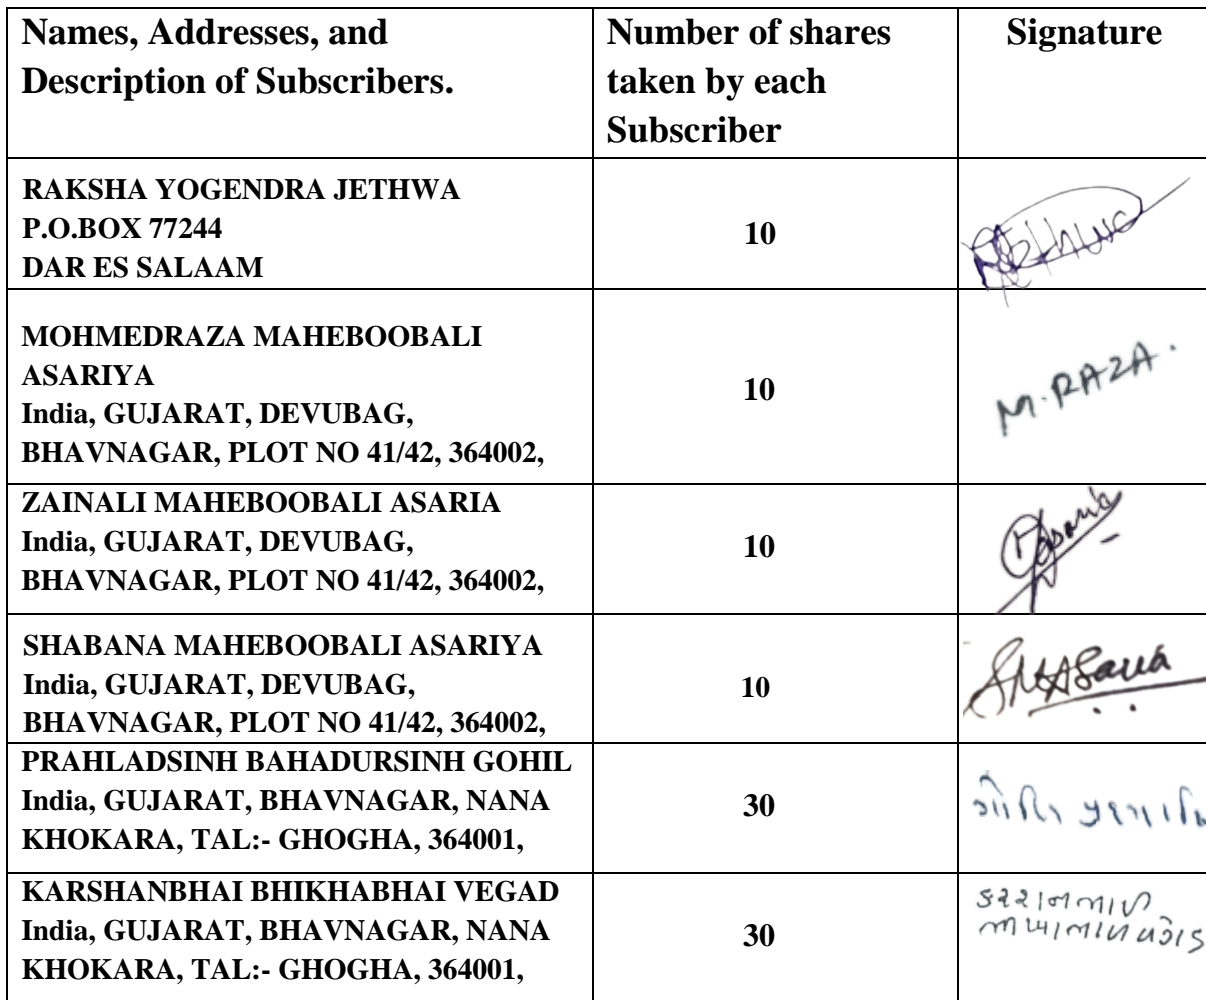 Names, Addresses, and
Description of Subscribers.
Number of shares
taken by each
Subscriber
Signature
RAKSHA YOGENDRA JETHWA
P.O.BOX 77244
DAR ES SALAAM
10
MOHMEDRAZA MAHEBOOBALI
ASARIYA
India, GUJARAT, DEVUBAG,
BHAVNAGAR, PLOT NO 41/42, 364002,
10
M. RAZA.
ZAINALI MAHEBOOBALI ASARIA
India, GUJARAT, DEVUBAG,
BHAVNAGAR, PLOT NO 41/42, 364002,
10
SHABANA MAHEBOOBALI ASARIYA
India, GUJARAT, DEVUBAG,
BHAVNAGAR, PLOT NO 41/42, 364002,
10
PRAHLADSINH BAHADURSINH GOHIL
India, GUJARAT, BHAVNAGAR, NANA
KHOKARA, TAL:- GHOGHA, 364001,
30
KARSHANBHAI BHIKHABHAI VEGAD
India, GUJARAT, BHAVNAGAR, NANA
KHOKARA, TAL:- GHOGHA, 364001,
30